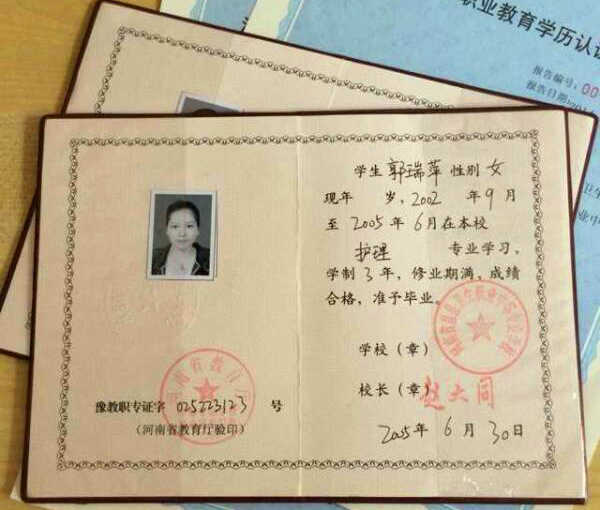 职业教育学历认证
报告编号:00
报告日期:201
学生 郭瑞萍 性别 女
现年 岁,2002 年 9 月
至 2005 年 6 月在本校
护理 专业学习,
学制 3 年,修业期满,成绩
合格,准予毕业。
学校(章)
校长(章) 赵大同
2005 年 6 月 30 日
河南省教育厅
豫教职专证字 025223123 号
(河南省教育厅验印)